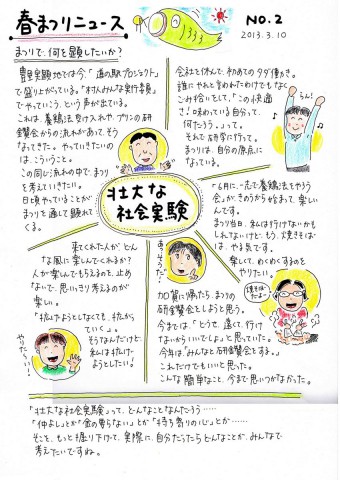 春まつりニュース
NO.2
2013.3.10
まつりで、何を顕したいか？
豊里実顕地では今、「道の駅プロジェクト」
で盛り上がっている。「村人みんな実行委員」
でやっていこう、という声が出ている。
これは、養鶏法を受け入れや、プリンの研
鑽会からの流れがあって、そう
なってきた。やっていきたいの
は、こういうこと。
この同じ流れの中で、まつり
を考えていきたい。
日頃やっていることが
まつりを通して顕れて
くる。
会社を休んで、初めてのタダ働き。
誰にやれと言われたわけでもなく
ごみ拾いをして、「この快適
さ！味わっている自分って、
何だろう。」って。
それで研学に行って。
まつりは、自分の原点に
なっている。
らん！
壮大な
社会実験
「6月に、一志で養鶏法をやろう
会」が、きのうから始まって、楽しい
んです。
まつり当日、私は行けないかも
しれないけど、もう、焼きそば
は、やる気です。
楽しくて、わくわくするのを
やりたい。
焼そば
だよ〜
来てくれた人が、どん
な風に楽しんでくれるか？
人が楽しんでもらえるのを、止め
ないで、思いっきり考えるのが
楽しい。
「抜け
ようとしなくても、抜けて
いく」。
そうなんだけど、
私は抜け
ようとしたい！
やりたーい！
あっそうだ！
加賀に帰ったら、まつりの
研鑽会をしようと思う。
今までは、「どうせ、遠くて、行け
ないからいいでしょ」と思っていた。
今年は、「みんなと研鑽会をする。」
これだけでもいいと思った。
こんな簡単なこと、今まで思いつかなかった。
「壮大な社会実験」って、どんなことなんだろう……
「仲よし」とか「金の要らない」とか「持ち寄りの心」とか……
そこを、もっと掘り下げて、実際に、自分たちならどんなことか、みんなで
考えたいですね。